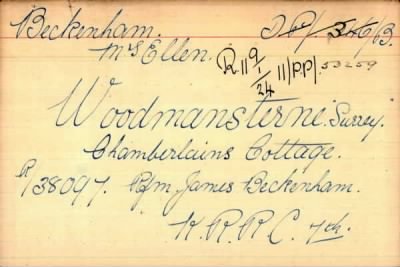 Beckenham. D P/ 346/B.
Mrs Ellen. R 119/1/24 11/PP/. 53259
Woodmansterne. Surrey.
Chamberlains Cottage.
R/38097. Rfm James Beckenham.
K. R. R. C. 7th.